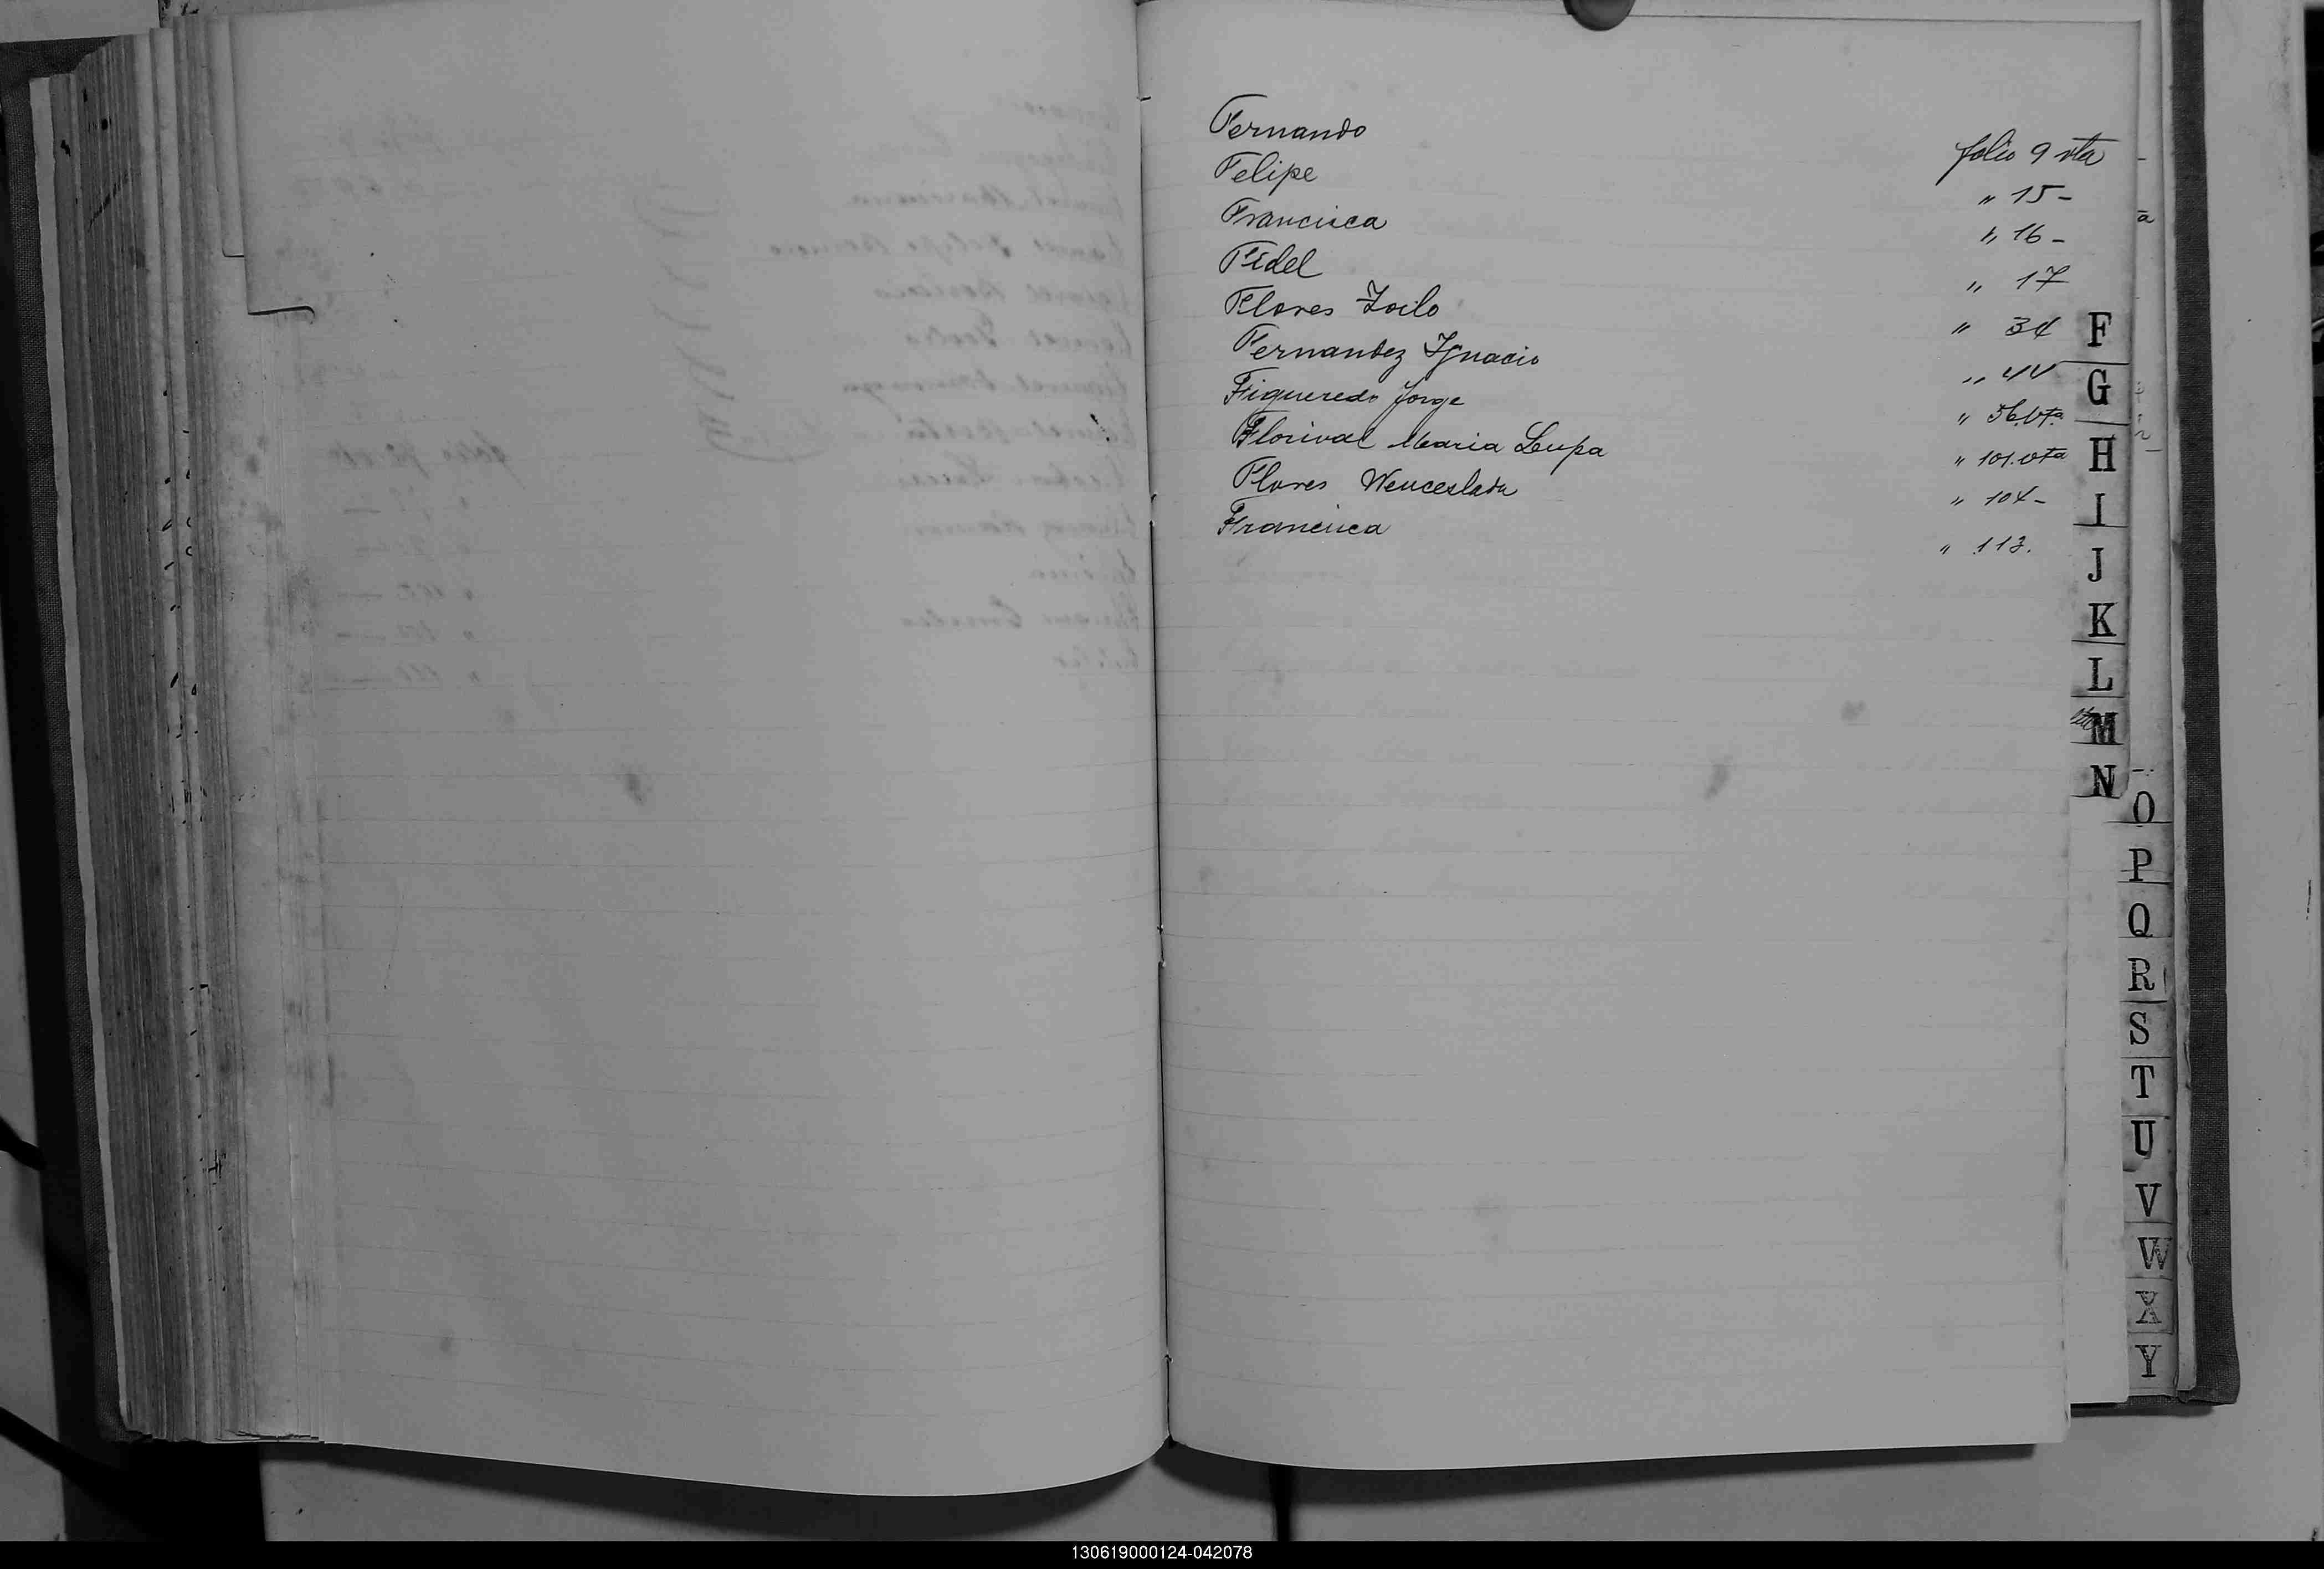 Fernando folio 9 vta
Felipe " 15 -
Francisca " 16 -
Fidel " 17
Flores Zoilo " 34
Fernandez Ignacio " 44
Figueredo Jorge " 56.vta
Florival Maria Lupa " 101.vta
Flores Wenceslada " 104 -
Francisca " 113.
F
G
H
I
J
K
L
M
N
O
P
Q
R
S
T
U
V
W
X
Y
130619000124-042078